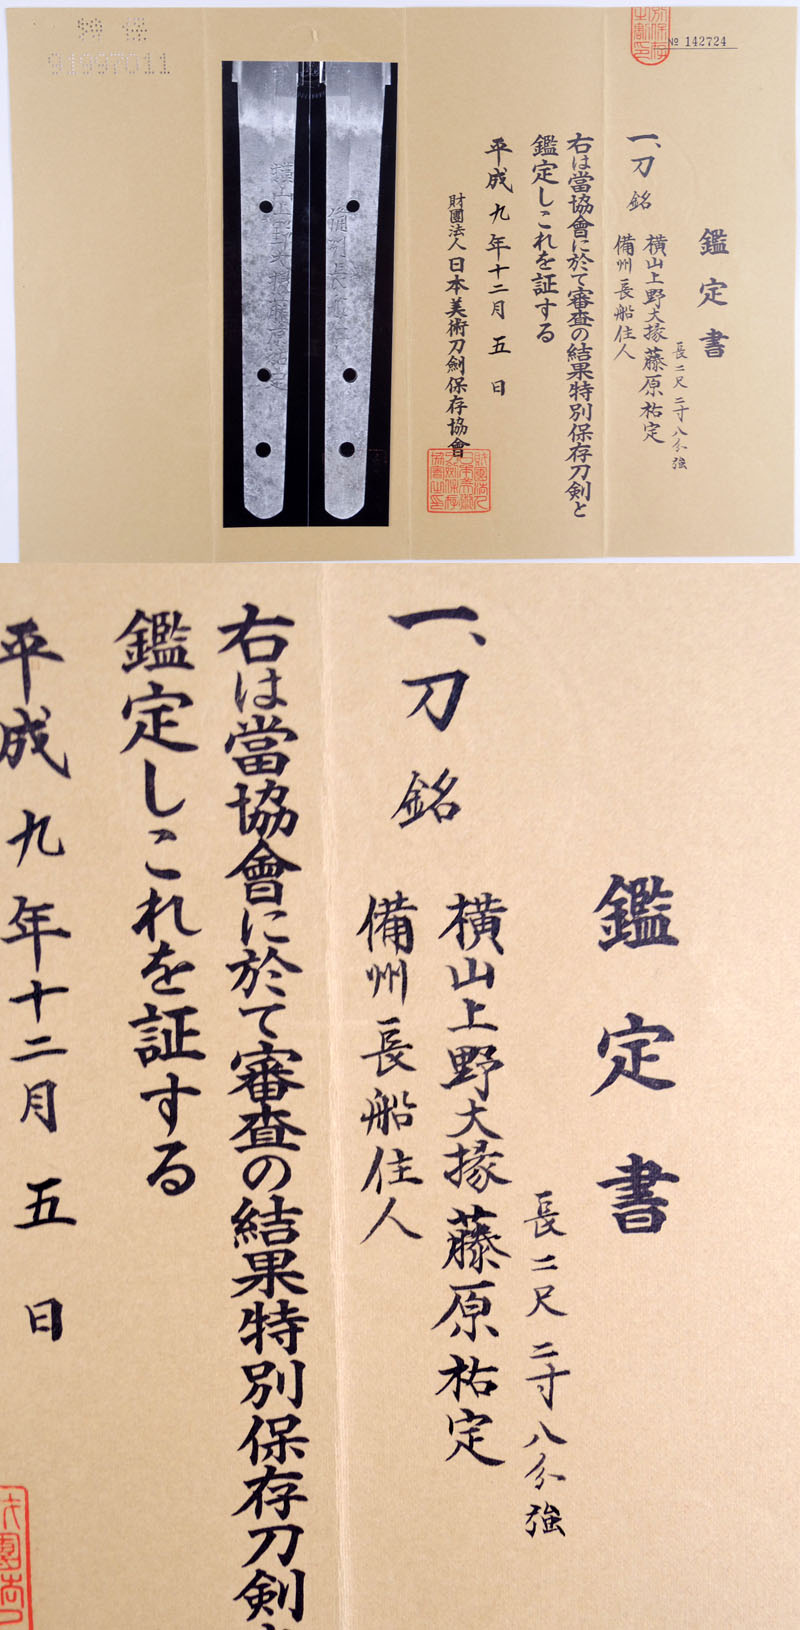 № 142724
鑑定書
長二尺二寸八分強
一、刀 銘
横山上野大掾藤原祐定
備州長船住人
右は當協會に於て審査の結果特別保存刀剣と
鑑定しこれを証する
平成九年十二月五日
財團法人日本美術刀剣保存協會
横山上野大掾藤原祐定
鑑定書
長二尺二寸八分強
一、刀 銘
横山上野大掾藤原祐定
備州長船住人
右は當協會に於て審査の結果特別保存刀剣
鑑定しこれを証する
平成九年十二月五日